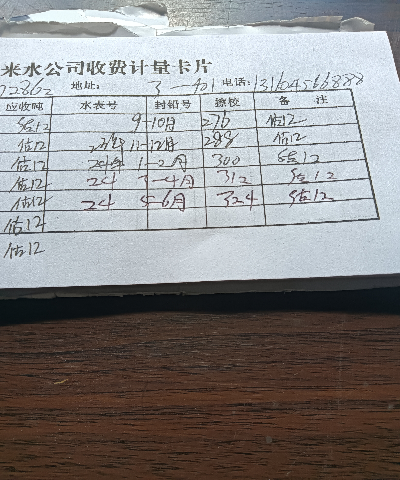 来水公司收费计量卡片
72862 地址: 3-401 电话:13164566888
应收吨 水表号 封铅号 撩校 备注
估12 9-10月 276 估12
估12 23年 11-12月 288 估12
估12 24年 1-2月 300 估12
估12 24 3-4月 312 估12
估12 24 5-6月 324 估12
估12
估12